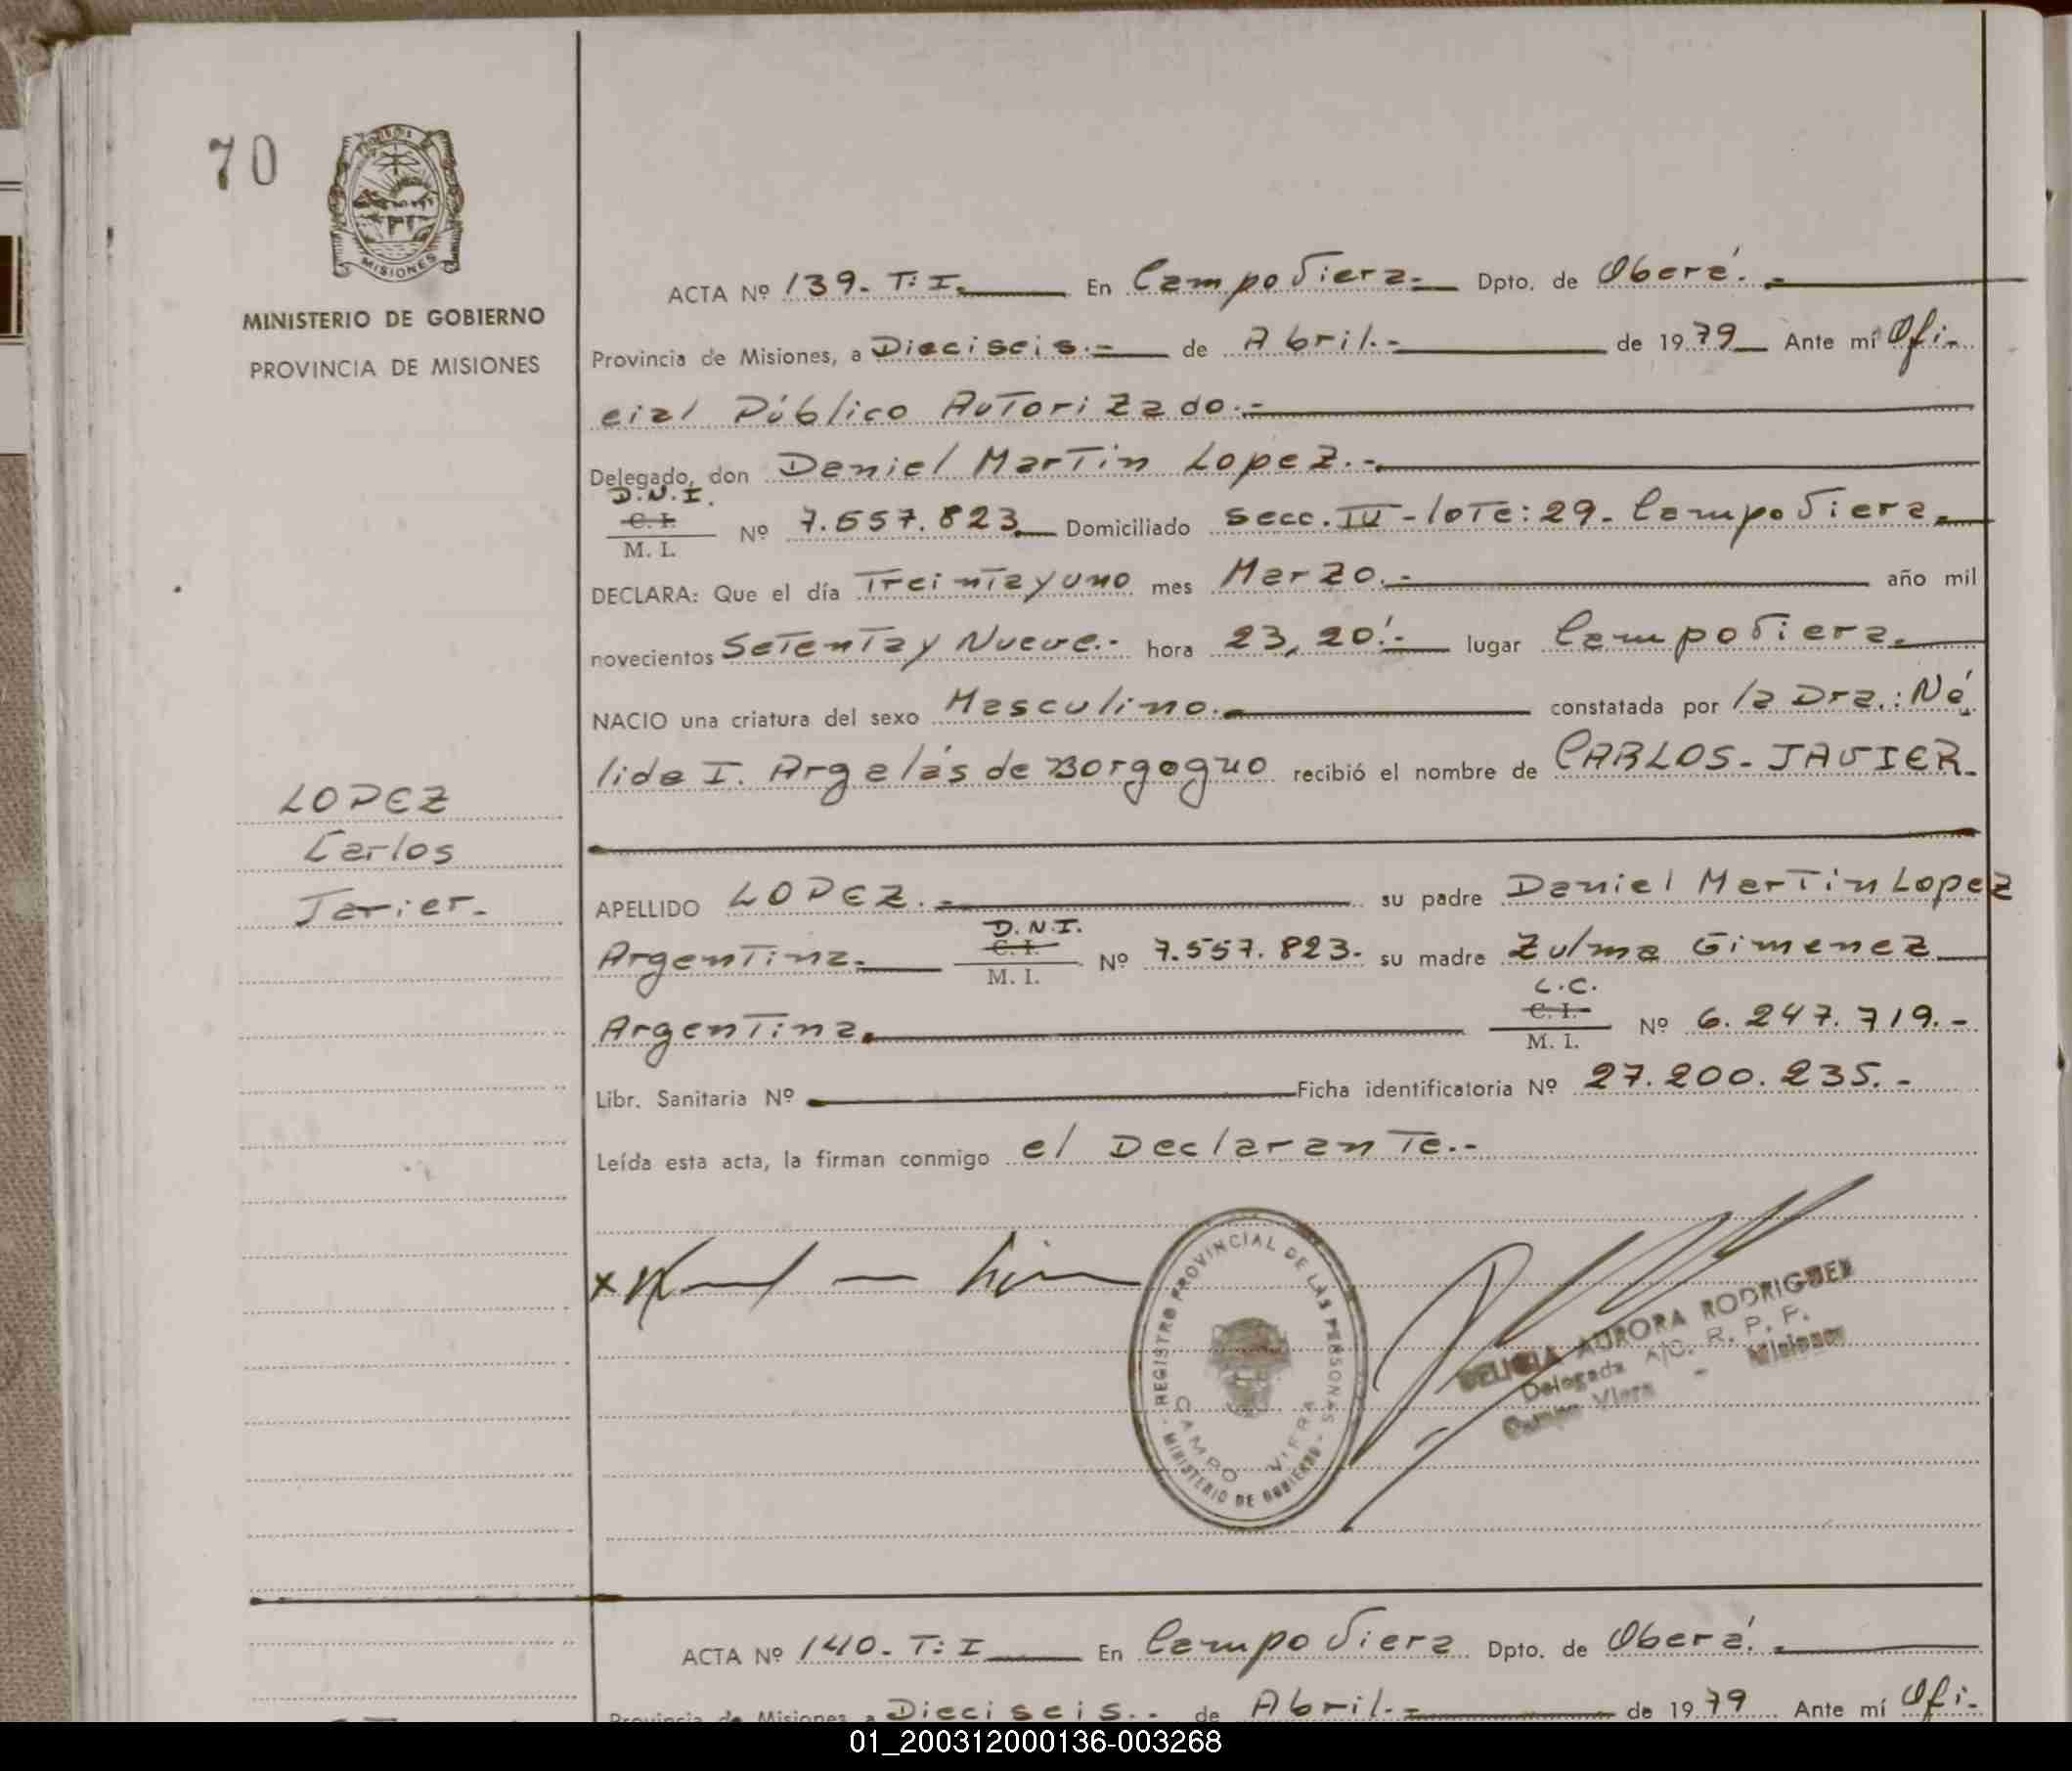 70
MISIONES
MINISTERIO DE GOBIERNO
PROVINCIA DE MISIONES
ACTA Nº 139. T: I. En Campo Viera.- Dpto. de Oberá.-
Provincia de Misiones, a Dieciseis.- de Abril.- de 1979 Ante mí Ofi-
cial Público Autorizado.-
Delegado, don Daniel Martin Lopez.-
D.N.I.
C. I.
M. I.
Nº 7.557.823 Domiciliado Secc. IV - lote: 29. Campo Viera.
DECLARA: Que el día Treinta y uno mes Marzo.- año mil
novecientos Setenta y Nueve.- hora 23,20'.- lugar Campo Viera.
NACIO una criatura del sexo Masculino.- constatada por la Dra.: Né
lida I. Argelás de Borgogno recibió el nombre de CARLOS-JAVIER-
LOPEZ
Carlos
Javier-
APELLIDO LOPEZ.- su padre Daniel Martin Lopez
Argentina.-
D.N.I.
C. I.
M. I.
Nº 7.557.823- su madre Zulma Gimenez
Argentina.
L.C.
C. I.
M. I.
Nº 6.247.719.-
Libr. Sanitaria Nº Ficha identificatoria Nº 27.200.235.-
Leída esta acta, la firman conmigo el Declarante.-
x
REGISTRO PROVINCIAL DE LAS PERSONAS
CAMPO VIERA
MINISTERIO DE GOBIERNO
DELICIA AURORA RODRIGUEZ
Delegada A/C. R. P. P.
Campo Viera - Misiones
ACTA Nº 140. T: I En Campo Viera Dpto. de Oberá.-
Provincia de Misiones a Dieciseis.- de Abril.- de 1979 Ante mí Ofi-
01_200312000136-003268